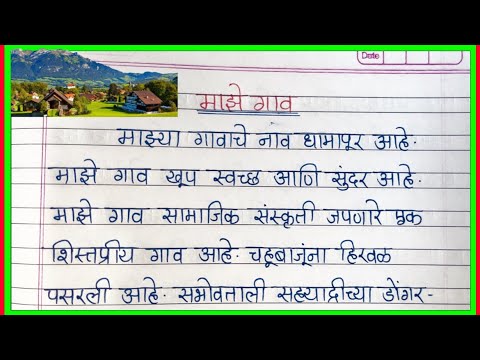 Date
माझे गाव
माझ्या गावाचे नाव धामापूर आहे.
माझे गाव खूप स्वच्छ आणि सुंदर आहे.
माझे गाव सामाजिक संस्कृती जपणारे एक
शिस्तप्रीय गाव आहे. चहूबाजूंना हिरवळ
पसरली आहे. सभोवताली सह्याद्रीच्या डोंगर-